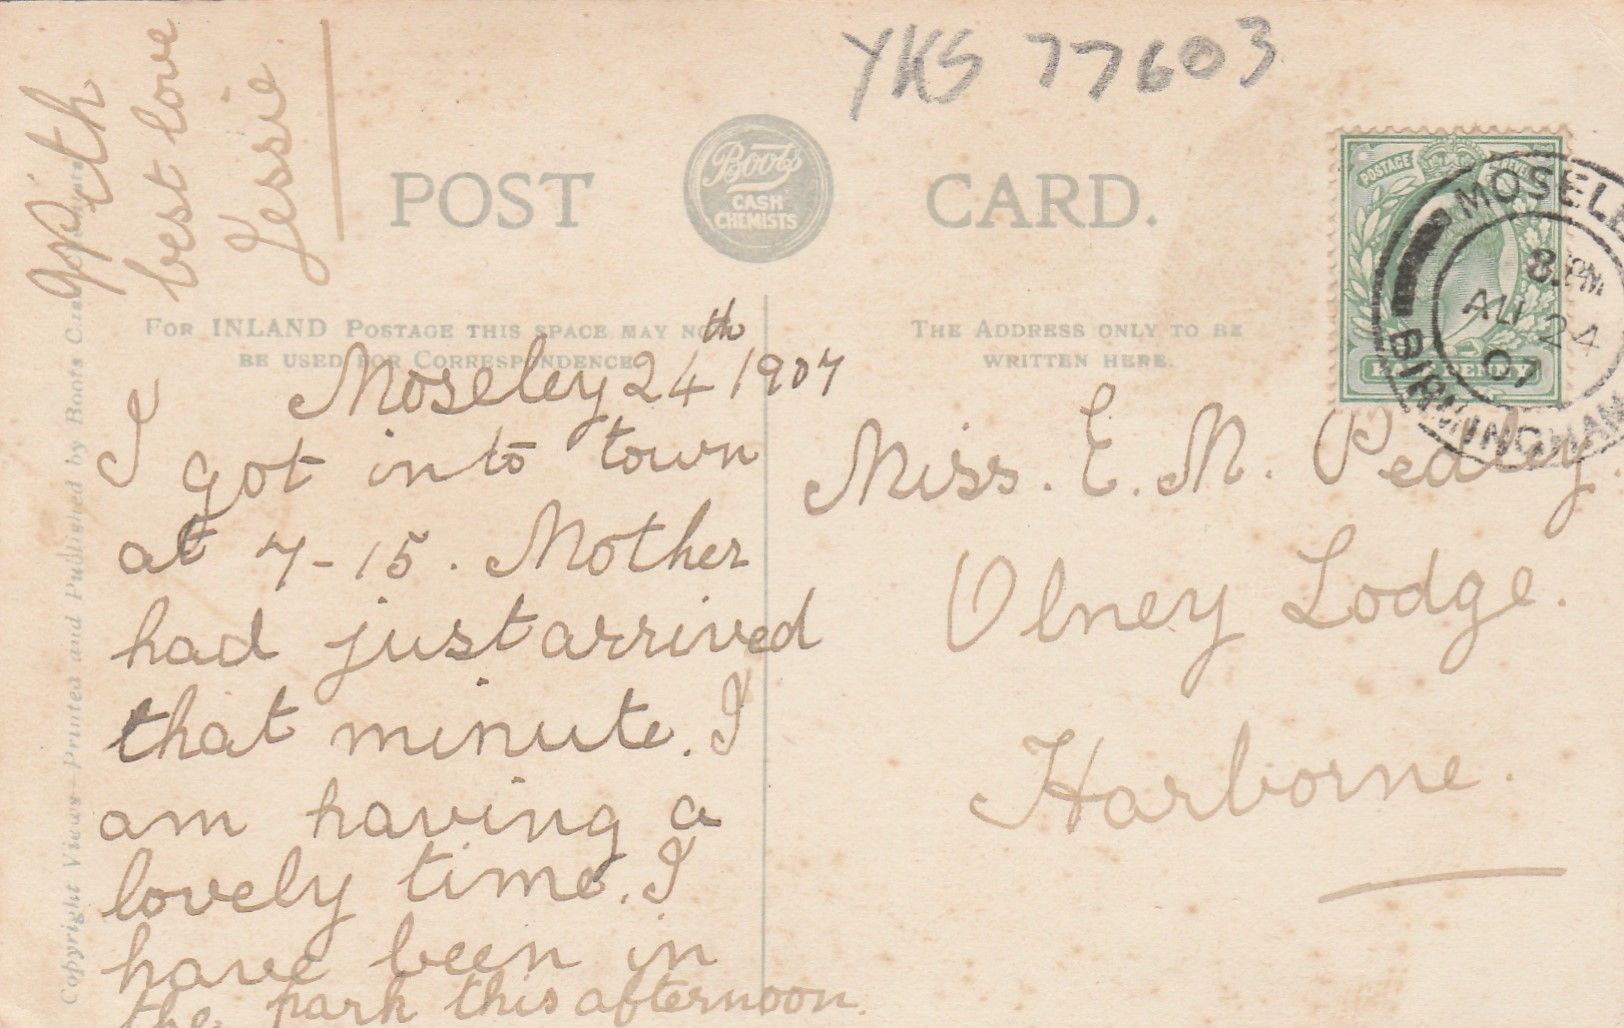 YKS 77603
POST CARD.
Boots
CASH
CHEMISTS
POSTAGE
MOSELEY
8. PM
AU 24
07
BIRMINGHAM
HALF PENNY
FOR INLAND POSTAGE THIS SPACE MAY NOT
BE USED FOR CORRESPONDENCE.
THE ADDRESS ONLY TO BE
WRITTEN HERE.
Moseley 24th 1907
I got into town
at 7-15. Mother
had just arrived
that minute. I
am having a
lovely time. I
have been in
the park this afternoon.
With
best love
Jessie.
Miss. E. M. Pedley
Olney Lodge.
Harborne.
Copyright Views—Printed and Published by Boots Cash Chemists